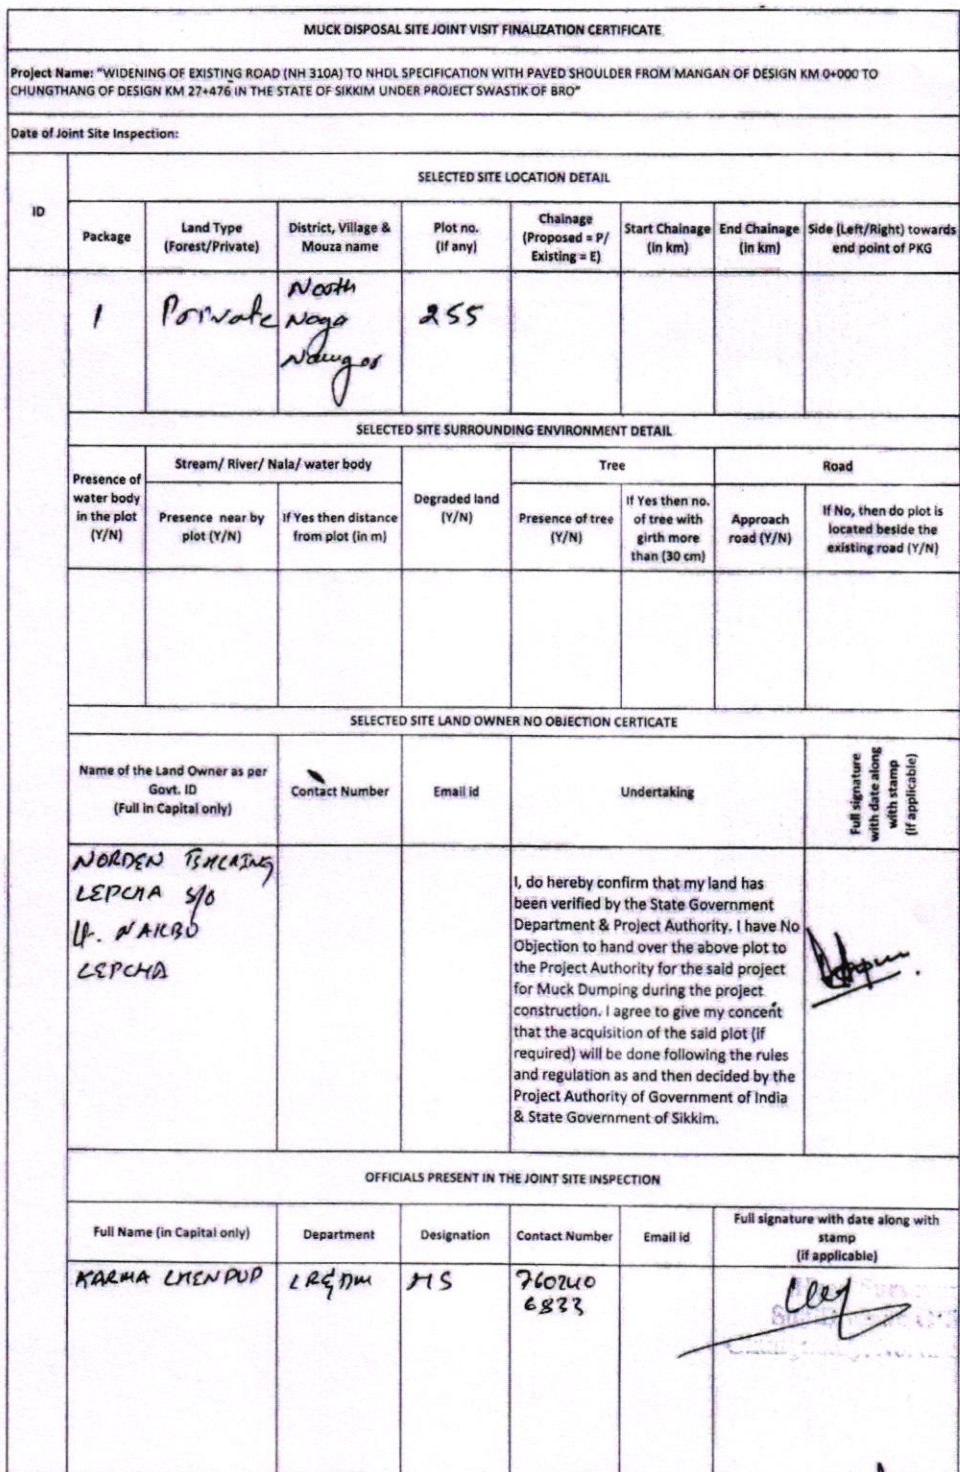 MUCK DISPOSAL SITE JOINT VISIT FINALIZATION CERTIFICATE
Project Name: "WIDENING OF EXISTING ROAD (NH 310A) TO NHDL SPECIFICATION WITH PAVED SHOULDER FROM MANGAN OF DESIGN KM 0+000 TO
CHUNGTHANG OF DESIGN KM 27+476 IN THE STATE OF SIKKIM UNDER PROJECT SWASTIK OF BRO"
Date of Joint Site Inspection:
ID
SELECTED SITE LOCATION DETAIL
Package
Land Type
(Forest/Private)
District, Village &
Mouza name
Plot no.
(If any)
Chainage
(Proposed = P/
Existing = E)
Start Chainage
(in km)
End Chainage
(in km)
Side (Left/Right) towards
end point of PKG
1
Private
North
Naga
255
SELECTED SITE SURROUNDING ENVIRONMENT DETAIL
Presence of
water body
in the plot
(Y/N)
Stream/ River/ Nala/ water body
Presence near by
plot (Y/N)
If Yes then distance
from plot (in m)
Degraded land
(Y/N)
Tree
Presence of tree
(Y/N)
If Yes then no.
of tree with
girth more
than (30 cm)
Road
Approach
road (Y/N)
If No, then do plot is
located beside the
existing road (Y/N)
SELECTED SITE LAND OWNER NO OBJECTION CERTICATE
Name of the Land Owner as per
Govt. ID
(Full in Capital only)
Contact Number
Email id
Undertaking
Full signature
with date along
with stamp
(if applicable)
NORDEN TSHERING
LEPCHA S/O
Lt. NARBO
LEPCHA
I, do hereby confirm that my land has
been verified by the State Government
Department & Project Authority. I have No
Objection to hand over the above plot to
the Project Authority for the said project
for Muck Dumping during the project
construction. I agree to give my concent
that the acquisition of the said plot (if
required) will be done following the rules
and regulation as and then decided by the
Project Authority of Government of India
& State Government of Sikkim.
OFFICIALS PRESENT IN THE JOINT SITE INSPECTION
Full Name (in Capital only)
Department
Designation
Contact Number
Email id
Full signature with date along with
stamp
(if applicable)
KARMA LHENDUP
LR&DM
HS
760240
6833